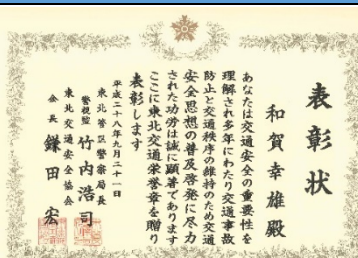 表彰状
和賀幸雄殿
あなたは交通安全の重要性を
理解され多年にわたり交通事故
防止と交通秩序の維持のため交通
安全思想の普及啓発に尽力
された功労は誠に顕著であります
ここに東北交通栄誉章を贈り
表彰します
平成二十八年九月二十一日
東北管区警察局長
警視監 竹内浩司
東北交通安全協会
会長 鎌田宏